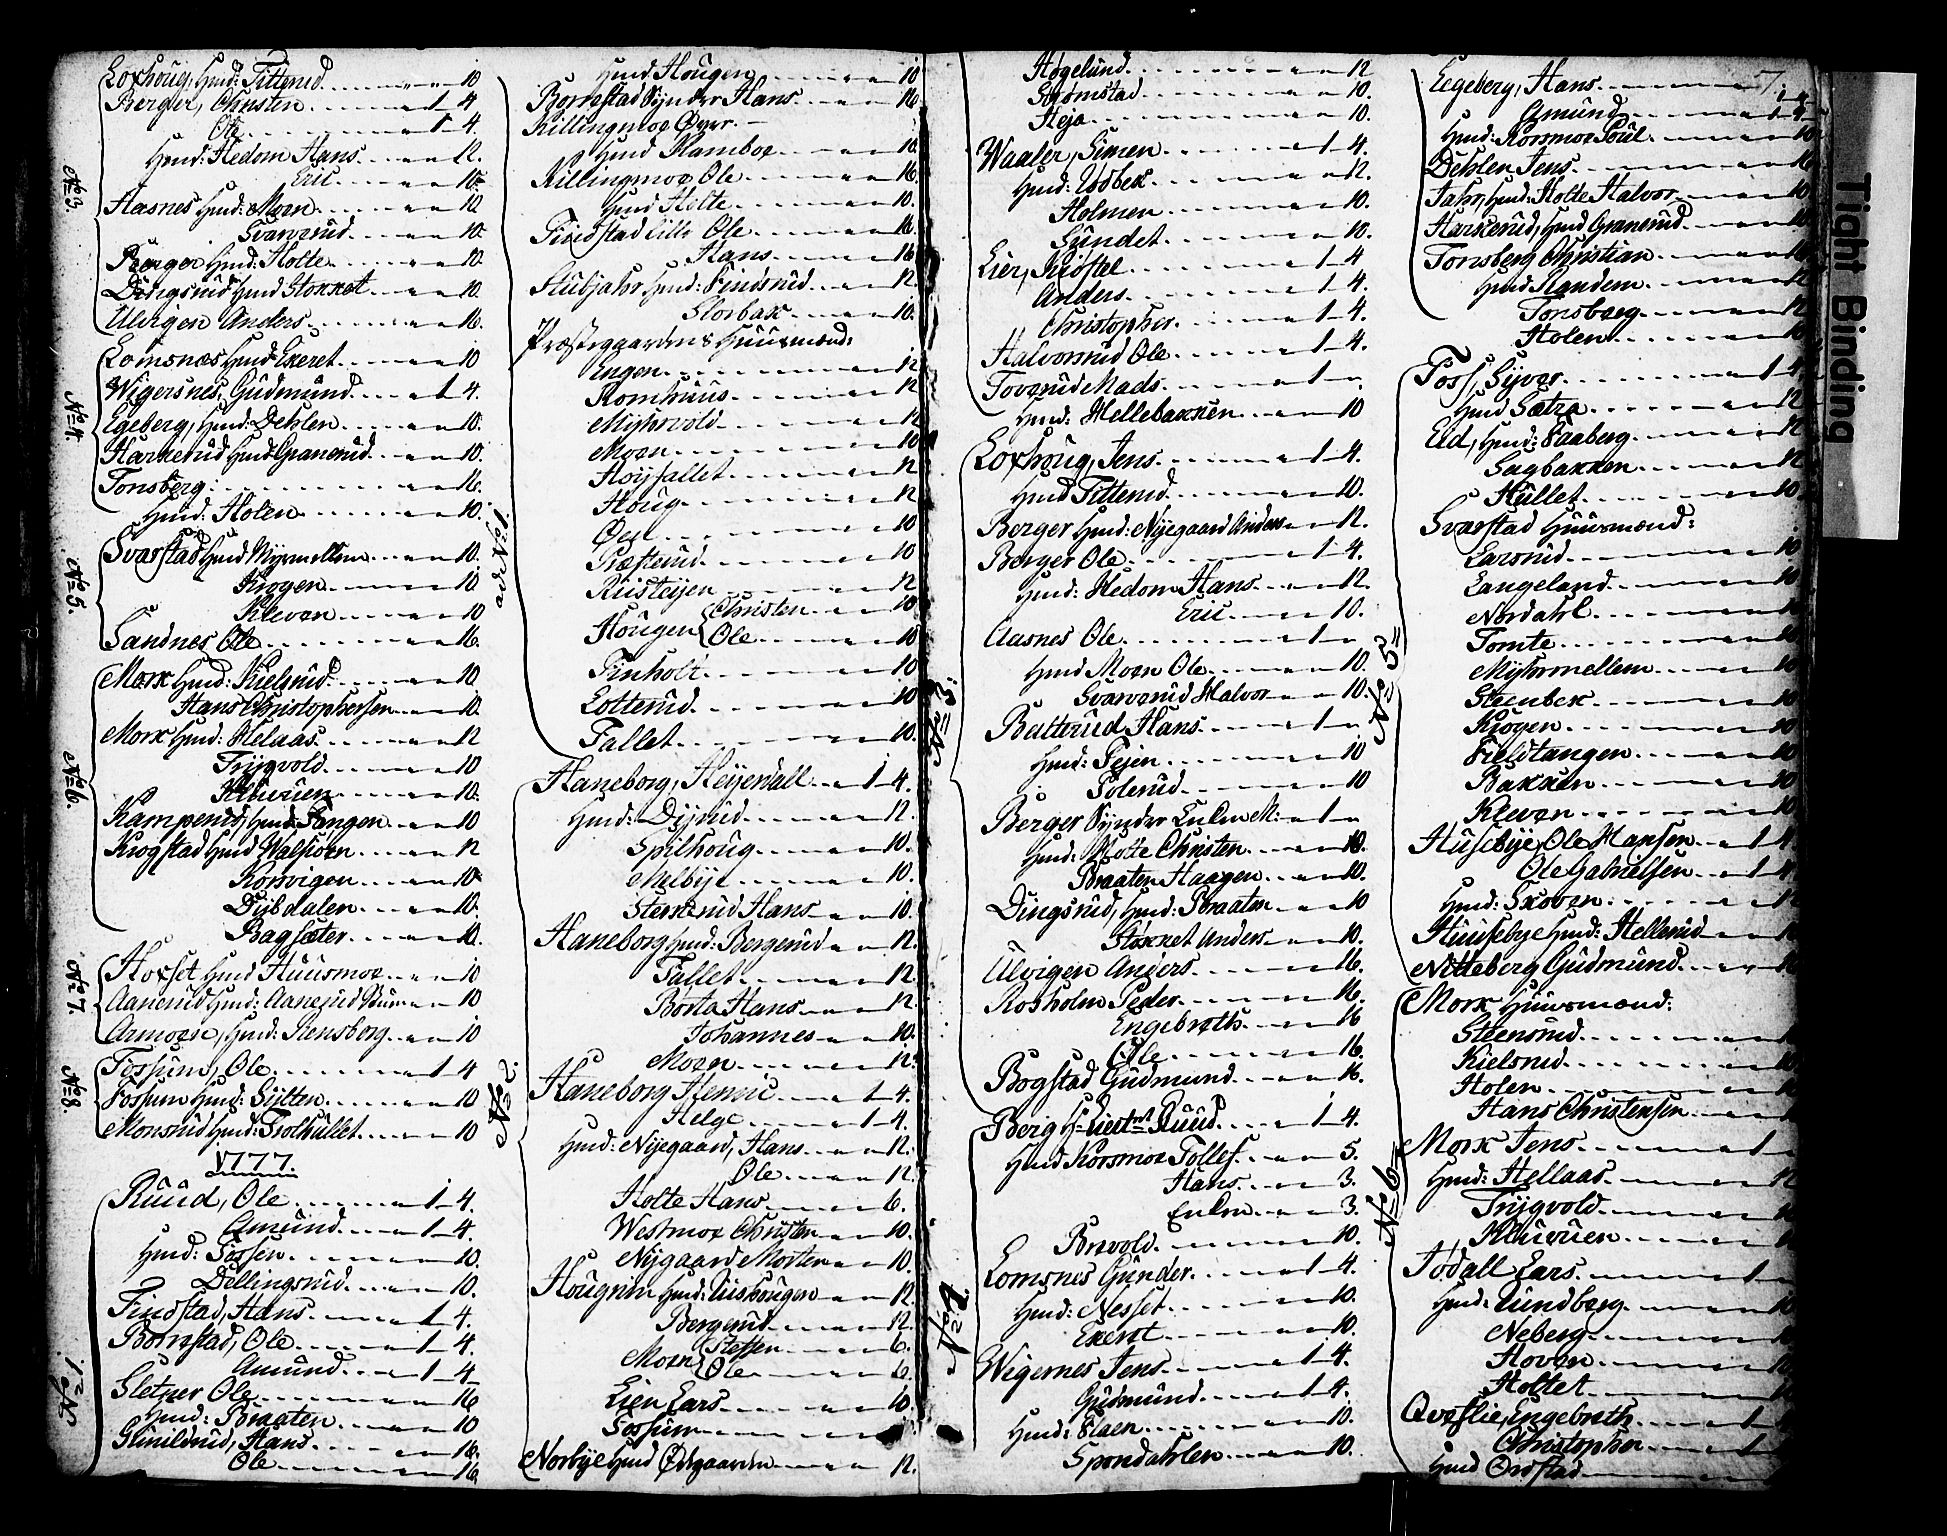 Loxhoug, Hmd: Titterud 10
Berger, Christen 1 4
Ole 1 4.
Hmd: Hedom Hans 12.
Eric 10.
No 3.
Aasnes Hmd: Moen 10
Svarverud 10.
Berger Hmd: Holte 10
Dingsrud Hmd Stokket 10.
Ulvigen Anders 16.
Lomsnæs Hmd: Exeret 10
Wigersnes, Gudmund 1 4.
No 4.
Egeberg, Hmd: Dehlen 10.
Harkerud Hmd Granerud 10.
Tonsberg: 16.
Hmd: Holen 10.
Svarstad Hmd Myrmellem 10.
Krogen 10
No 5.
Kleven 10
Sandnes Ole 16.
Mork Hmd: Kielsrud 10
Hans Christophersen 10.
Mork Hmd: Helaas 12
Trygvold 10
No 6.
10.
Kamperud, Hmd: Tangen 10
Krogstad Hmd 12
Korsvigen 10
Dybdalen 10.
Bagsæter 10.
Hoxset Hmd Huusmoe 10
No 7.
Aanerud Hmd: Aanerud 10
Armoese, Hmd: Rensberg 10
Fossum, Ole 1 4
No 8.
Fossum Hmd: Sytten 10
Monsrud Hmd: Trolhullet 10
1777.
Ruud, Ole 1 4.
Amund 1 4.
Hmd: Fossen 10.
Dellingsrud 10.
Trudstad, Hans 1 4.
Bornstad, Ole 1 4.
Amund 1 4
Sletner Ole 16
Hmd: Braaten 10
No 1
Gunildrud, Hans 16.
Ole 16
Hmd Hougen 10
Bornestad Synder Hans 16
Killingmoe Øvre.
Hmd Flamboe 10
Killingmoe Ole 16.
Hmd Holte 10
Trudstad Lille Ole 16.
Hans 16
Stubjahr Hmd: Findsrud 12
Slorbak 10.
Præstegaardens Huusmænd:
Engen 12
Komhuus 12
Myhrvold 12
Moen 10
Høyfallet 12
Houg 12
Øen 10
Præsterud 10
Riisteyen 12
Hougen Christen 10
Ole 10
Finholt 10
Lotterud 10
Fallet 10.
Haneborg, Heyerdall 1 4.
Hmd: Dysrud 12.
Spilhoug 10.
Melbye 10.
Stensrud Hans 10.
Haneborg Hmd: Bergerud 12.
Fallet 12
Borta Hans 12
Johannes 10.
Moen 12
No 2.
Haneborg Henric 1 4.
Helge 1 4.
Hmd: Nyegaard, Hans 12.
Ole 12.
Holte Hans 6.
Westmoe Christen 10.
Nygaard Morten 10.
Hougrim Hmd: 12.
Bergerud 12
Moen Steffen 6.
Ole 6.
Lien Lars 10.
Fossum 10.
Norbye Hmd Ødegaarden 12.
Høgelund 12
Strømstad 10.
Heja 10.
Waaler, Simen 1 4.
Hmd: Udsbek 12.
Holmen 10.
Sundet 10.
Lier, Kiøstel 1 4
Anders 1 4.
Christopher 1 4.
Halvorsrud Ole 1 4.
Toverud Mads 1
Hmd: Hellebakken 10
Loxhoug, Jens 1 4.
Hmd Titterud 10.
Berger Hmd: Nyegaard Anders 12.
Berger Ole 1 4.
Hmd: Hedom Hans 12
Eric 10.
Aasnes Ole 1
Hmd Moen Ole 10.
Svarverud Halvor 10.
No 3.
Butterud Hans 1
Hmd: Pejen 10
Polerud 10
Berger Synder Enken M: 1
Hmd: Holte Christen 10.
Braaten Haagen 10.
Dingsrud, Hmd: Braaten 10
Stokket Anders 10.
Ulvigen Anders 16.
Rosholm Peder 16.
Engebreth 16
Ole 16.
Bogstad Gudmund 16.
Berg Hr Lieutnt Ruud 1 4.
Hmd Korsmoe Tollef 5.
Hans 3.
Enken 3.
Brevold 10.
Lomsnes Gunder 1 4.
Hmd: Nesset 10.
No 4
Exeret 10.
Wigernes Jens 1 4.
Gudmund 1 4.
Hmd: Flaen 10.
Spondahlen 10.
7.
Eegeberg, Hans 1 4
Amund 1 4
Hmd: Korsmoe Poul 10
Dehlen Jens 16
Jahr, Hmd: Holte Halvor 10
Harkerud, Hmd Granerud 10
Tonsberg Christian 16
Hmd Randem 12
Tonsberg 12
Holen 10
Foss, Syver 1 4
Hmd Sætra 12
Eid, Hmd: Faaberg 12
Sagbakken 12
Hullet 10
Svarstad Huusmænd:
Larsrud 10
Langeland 10
Nordahl 10
No 5
Tomte 10
Myhrmellem 10
Steenbek 10
Krogen 10
Fieldtangen 10
Bakken 10
Kleven 10
Husebye, Ole Hansen 1 4
Ole Gabrielsen 1 4
Hmd: Skoven
Huusebye Hmd: Hellerud
Nitteberg Gudmund
Mork Huusmænd:
Steensrud
Kielsrud
Holen
Hans Christensen
Mork Jens 1
No 6
Hmd: Hellaas 12
Trygvold
Jødall Lars 1
Hmd: Lundberg
Neberg
Hoven
Holtet
Qveslie, Engebreth 1
Christopher 1
Hmd Ordstad
Tight Binding